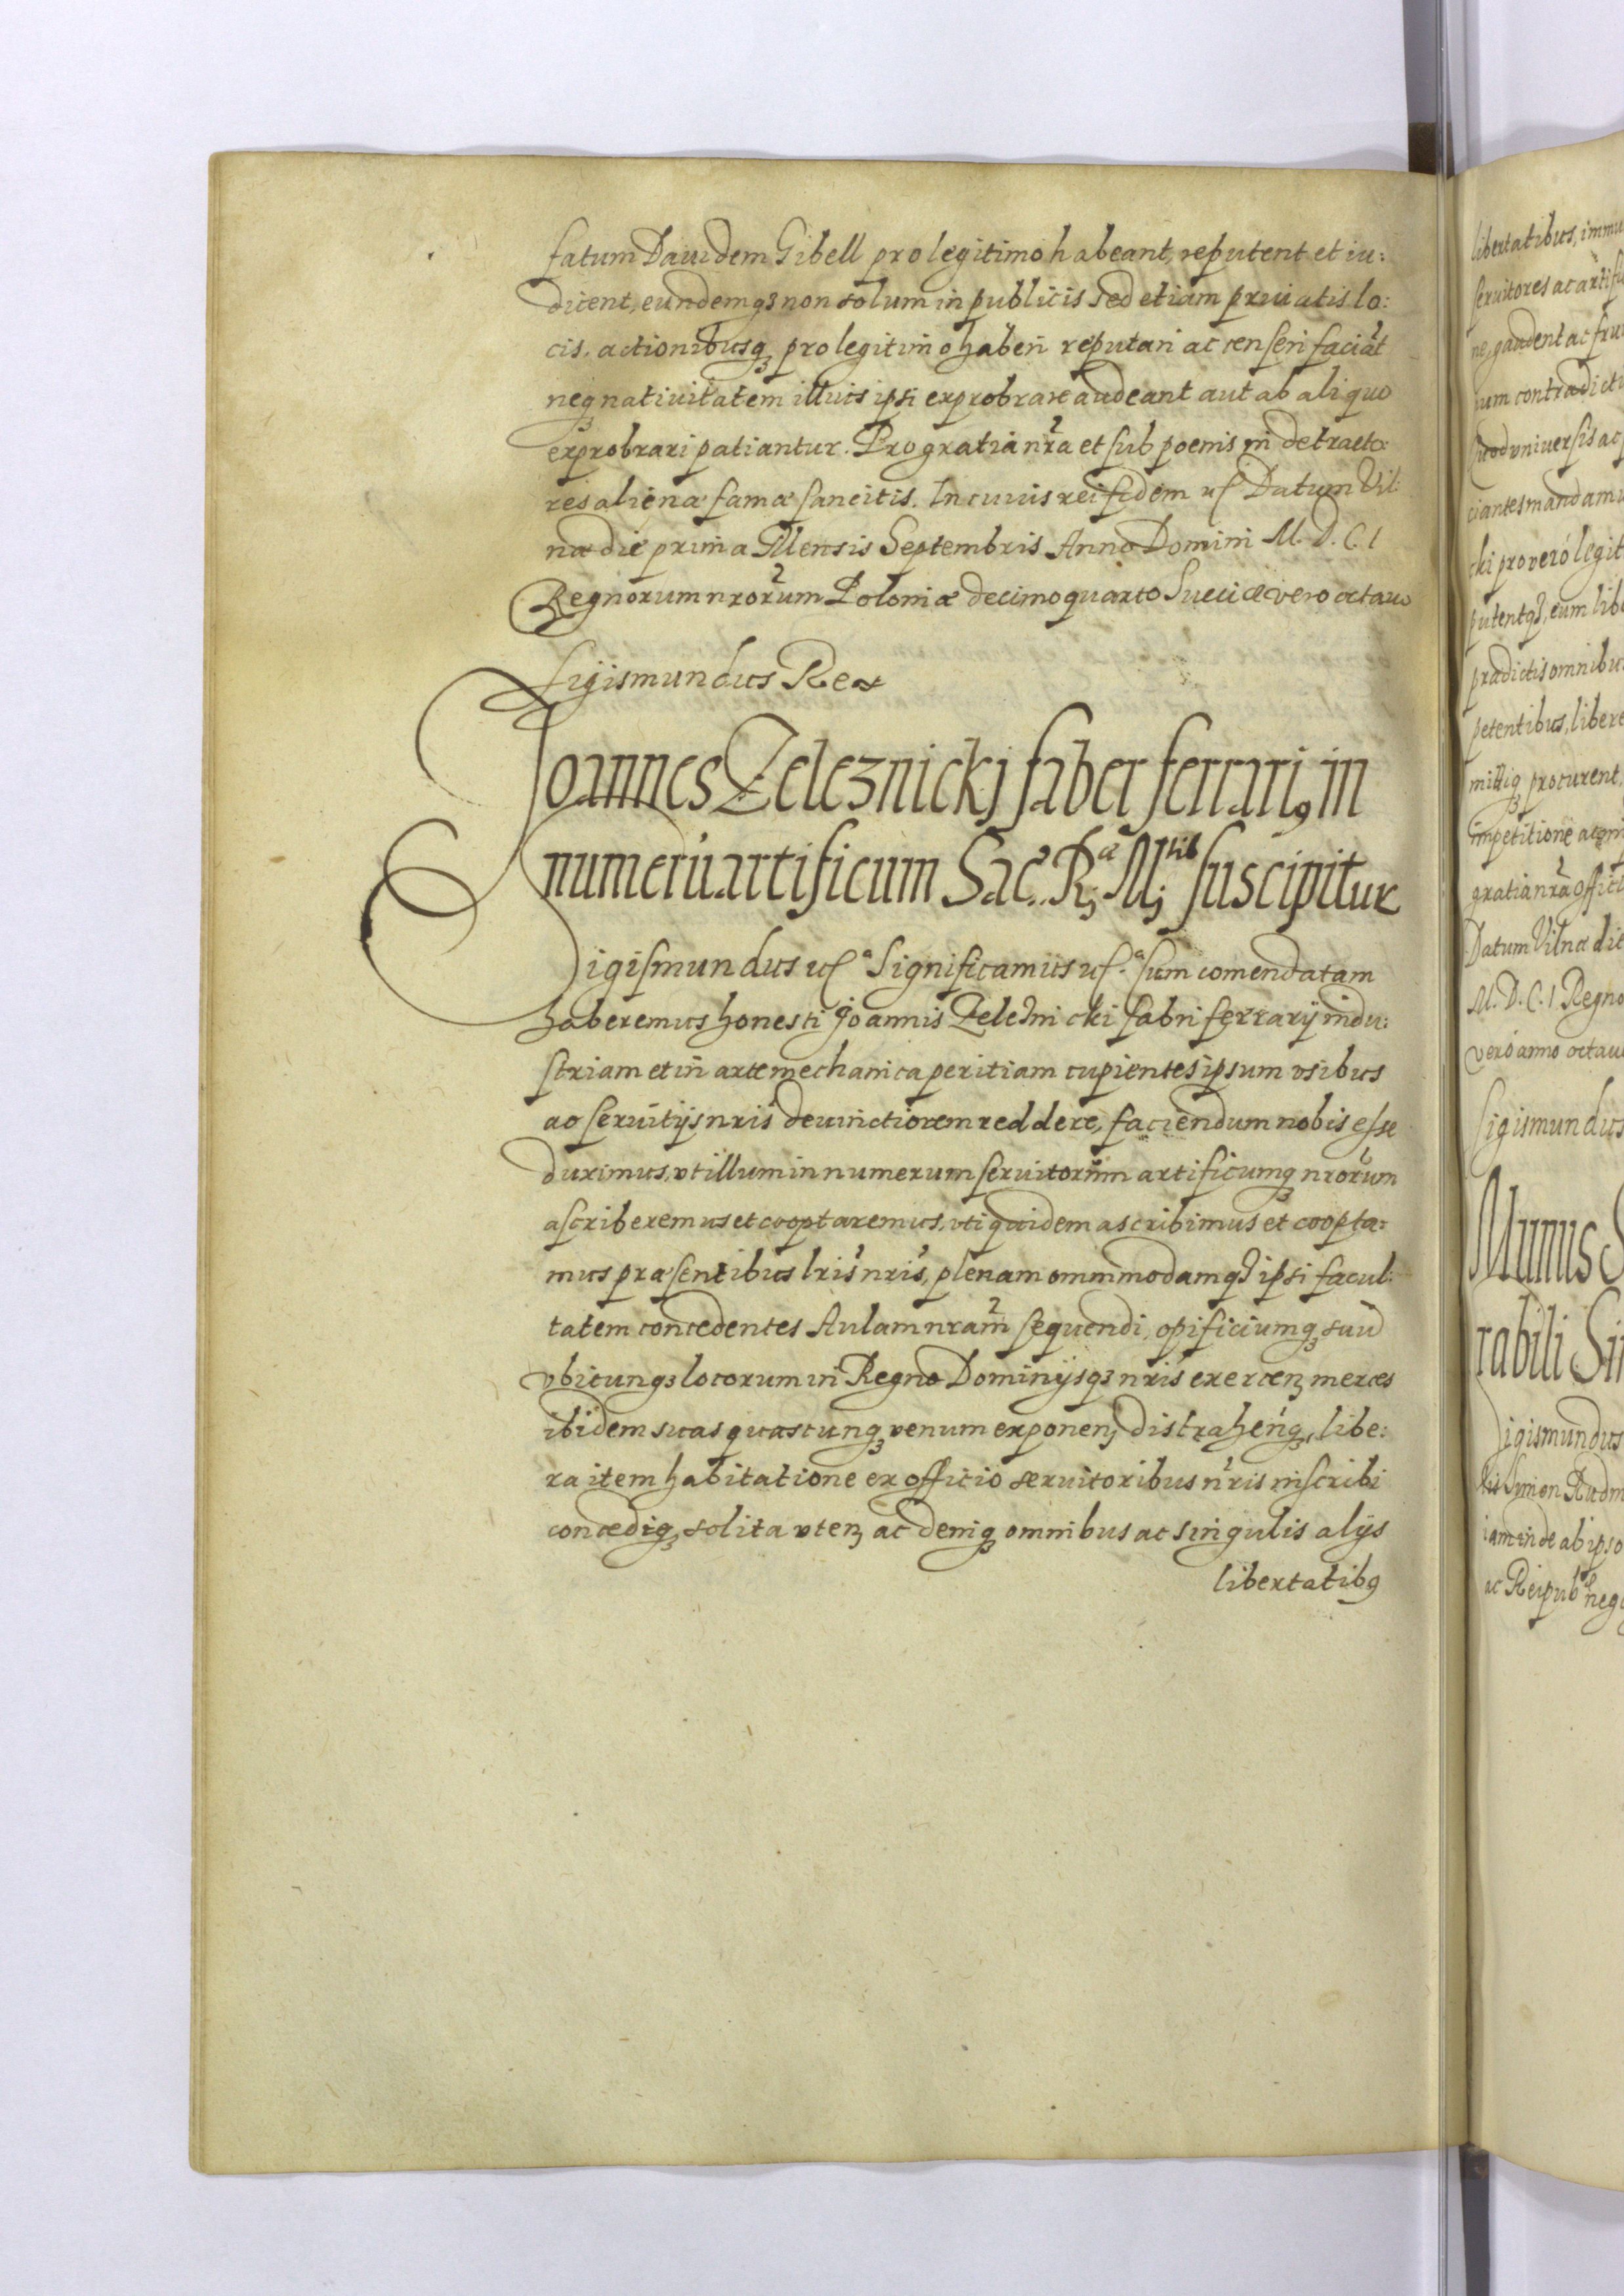 fatum Dauidem Gibell pro legitimo habeant, reputent et iu:
dicent, eundemqꝫ non solum in publicis sed etiam priuatis lo:
cis. actionibusqꝫ pro legitimo haberi reputari ac censeri faciāt
neqꝫ natiuitatem illius ipsi exprobrare audeant aut ab aliquo
exprobrari patiantur. Pro gratia nr̃a et sub poenis in detracto:
res alienæ famæ sancitis. In cuius rei fidem etc Datum Vil:
næ die prima Mensis Septembris Anno Domini M.D.C.I
Regnorum nrõrum Poloniæ decimoquarto Sueciæ vero octauo
Sigismundus Rex
Joannes Zeleznickj faber ferrariꝰ in
numerū artificum Sac. Rꝫ Mꝫ suscipitur
Sigismundus etc.ᵃ Significamus etc.ᵃ Cum comendatam
haberemus honesti Joannis Zeleznicki fabri ferrarij indu:
striam et in arte mechanica peritiam cupientes ipsum vsibus
ac seruitijs nris deuinctiorem reddere, faciendum nobis esse
duximus, vt illum in numerum seruitorum artificumqꝫ nrõrum
ascriberemus et cooptaremus, vti quidem ascribimus et coopta:
mus præsentibus lris nris, plenam omnimodamqꝫ ipsi facul:
tatem concedentes Aulam nram̃ sequendi, opificiumqꝫ suū
vbicunqꝫ locorum in Regno Dominijsqꝫ nris exercenꝫ merces
ibidem suas quascunqꝫ venum exponenꝫ distrahenqꝫ, libe:
ra item habitatione ex officio seruitoribus nris inscribi
concediqꝫ solita vtenꝫ ac deniqꝫ omnibus ac singulis alijs
libertatibꝰ
libertatibus, immu
seruitores ac artifi
ne, gaudent ac fru
Quod vniuersis ac
ciantes mandamu
cki pro vero legit
putentqꝫ, eum lib
prædictis omnibu
petentibus, libere
mittiqꝫ procurent
impetitione ac
gratia nr̃a Offici
Datum Vilnæ die
M.D.C.I Regno
vero anno octau
Sigismundus
Munus S
rabili Si
Sigismundus
iam inde ab ipso
ac Reipub neg